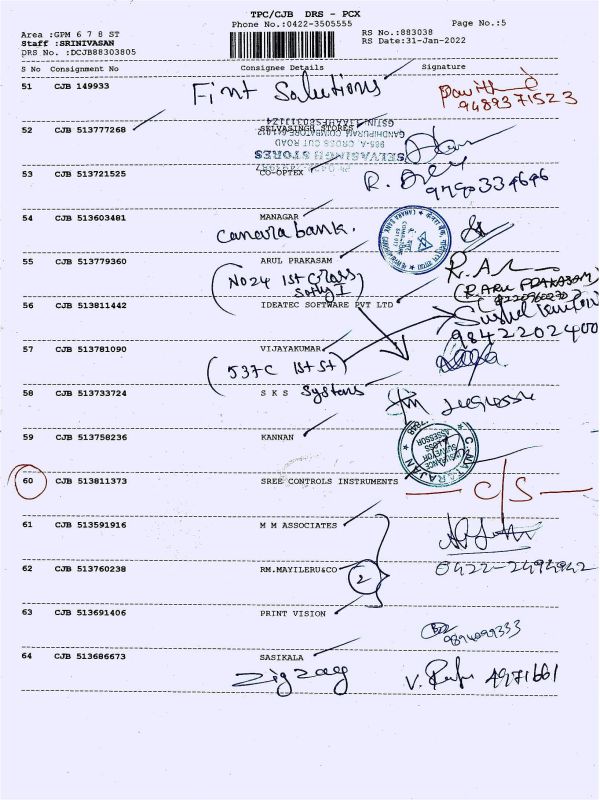 TPC/CJB DRS - PCX
Phone No.:0422-3505555
Page No.:5
Area :GPM 6 7 8 ST
RS No.:883038
Staff :SRINIVASAN
RS Date:31-Jan-2022
DRS No. :DCJBB8303805
S No Consignment No Consignee Details Signature
51 CJB 149933
Fint Solutions
9489371523
52 CJB 513777268 SELVASINGH STORES
SELVASINGH STORES
985-A, CROSS CUT ROAD
53 CJB 513721525 CO-OPTEX
54 CJB 513603481 MANAGAR
Canara bank.
55 CJB 513779360 ARUL PRAKASAM
(No24 1st Cross
56 CJB 513811442 IDEATEC SOFTWARE PVT LTD
9842202400
57 CJB 513781090 VIJAYAKUMAR
(537C 1st St)
58 CJB 513733724 S K S Systems
59 CJB 513758236 KANNAN
C. NATARAJAN
INSURANCE
SURVEYOR
& LOSS
ASSESSOR
60 CJB 513811373 SREE CONTROLS INSTRUMENTS
C/S
61 CJB 513591916 M M ASSOCIATES
62 CJB 513760238 RM.MAYILERU&CO
2
0422-2494942
63 CJB 513691406 PRINT VISION
9894099333
64 CJB 513686673 SASIKALA
Zigzag
4971661